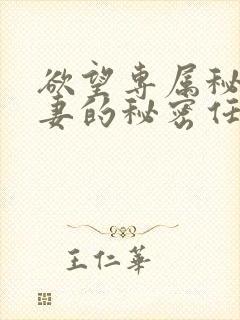 欲望专属秘
妻的秘密任
王仁華